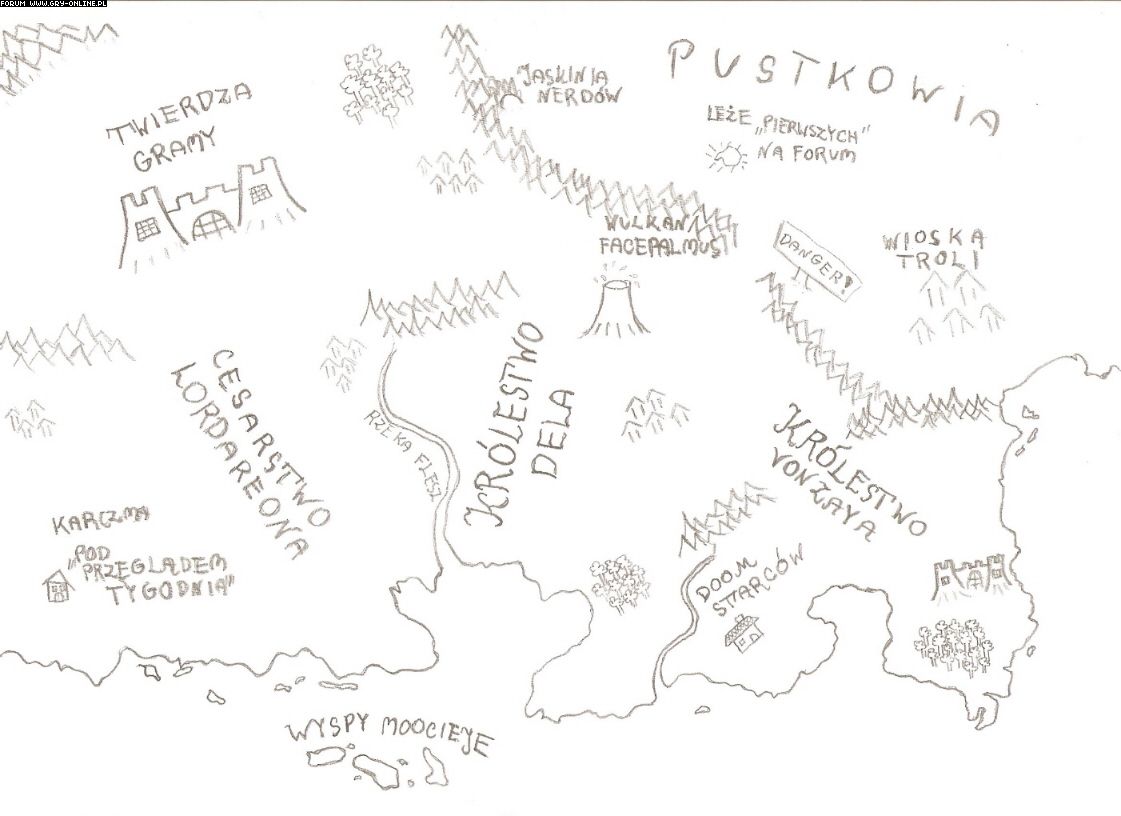 FORUM WWW.GRY-ONLINE.PL
PUSTKOWIA
JASKINIA
NERDÓW
TWIERDZA
GRAMY
LEŻE „PIERWSZYCH"
NA FORUM
WULKAN
FACEPALMUS
DANGER!
WIOSKA
TROLI
CESARSTWO
LORDAREONA
RZEKA FLESZ
KRÓLESTWO
DELA
KRÓLESTWO
VONZAYA
KARCZMA
„POD
PRZEGLĄDEM
TYGODNIA"
DOOM
STARCÓW
WYSPY MOOCIEJE